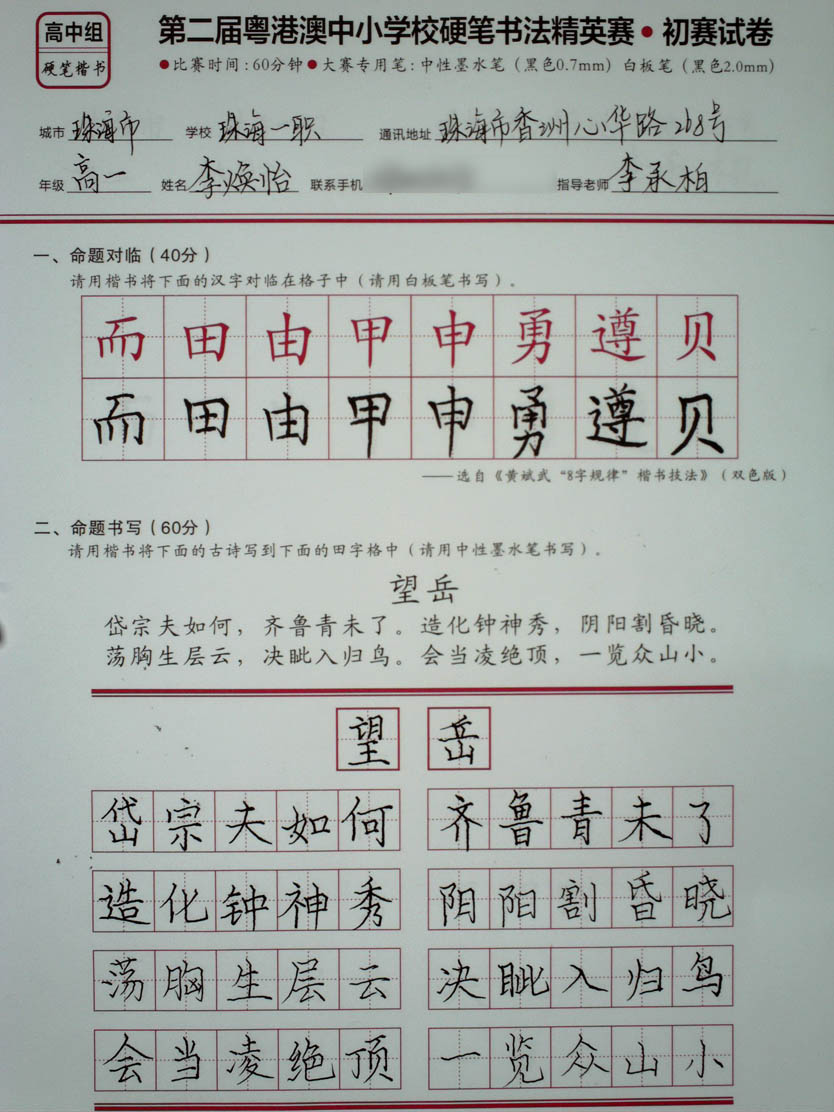 高中组
硬笔楷书
第二届粤港澳中小学校硬笔书法精英赛•初赛试卷
●比赛时间:60分钟●大赛专用笔:中性墨水笔(黑色0.7mm)白板笔(黑色2.0mm)
城市 珠海市 学校 珠海一职 通讯地址 珠海市香洲心华路268号
年级 高一 姓名 李焕怡 联系手机 指导老师 李承柏
一、命题对临(40分)
请用楷书将下面的汉字对临在格子中(请用白板笔书写)。
而田由甲申勇遵贝
而田由甲申勇遵贝
——选自《黄斌武“8字规律”楷书技法》(双色版)
二、命题书写(60分)
请用楷书将下面的古诗写到下面的田字格中(请用中性墨水笔书写)。
望岳
岱宗夫如何,齐鲁青未了。造化钟神秀,阴阳割昏晓。
荡胸生层云,决眦入归鸟。会当凌绝顶,一览众山小。
望岳
岱宗夫如何 齐鲁青未了
造化钟神秀 阳阳割昏晓
荡胸生层云 决眦入归鸟
会当凌绝顶 一览众山小